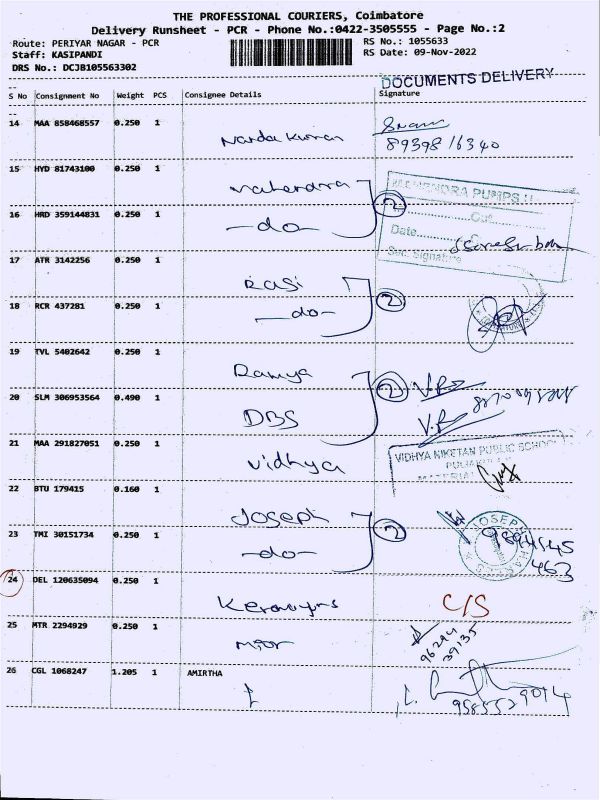 THE PROFESSIONAL COURIERS, Coimbatore
Delivery Runsheet - PCR - Phone No.:0422-3505555 - Page No.:2
Route: PERIYAR NAGAR - PCR
RS No.: 1055633
Staff: KASIPANDI
RS Date: 09-Nov-2022
DRS No.: DCJB105563302
DOCUMENTS DELIVERY
S No Consignment No Weight PCS Consignee Details Signature
14 MAA 858468557 0.250 1
8939816340
15 HYD 81743100 0.250 1
Mahendra
16 HRD 359144831 0.250 1
-do-
2
PUMPS
Out
Date
Sec. Signature
17 ATR 3142256 0.250 1
Rasi
18 RCR 437281 0.250 1
-do-
2
19 TVL 5402642 0.250 1
Ramya
20 SLM 306953564 0.490 1
DBS
2
21 MAA 291827051 0.250 1
Vidhya
VIDHYA NIKETAN PUBLIC SCHOOL
22 BTU 179415 0.160 1
Joseph
23 TMI 30151734 0.250 1
-do-
2
JOSEPH
24 DEL 120635094 0.250 1
C/S
25 MTR 2294929 0.250 1
96294
39135
26 CGL 1068247 1.205 1 AMIRTHA
9585529014